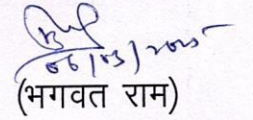 06/03/2025
(भगवत राम)